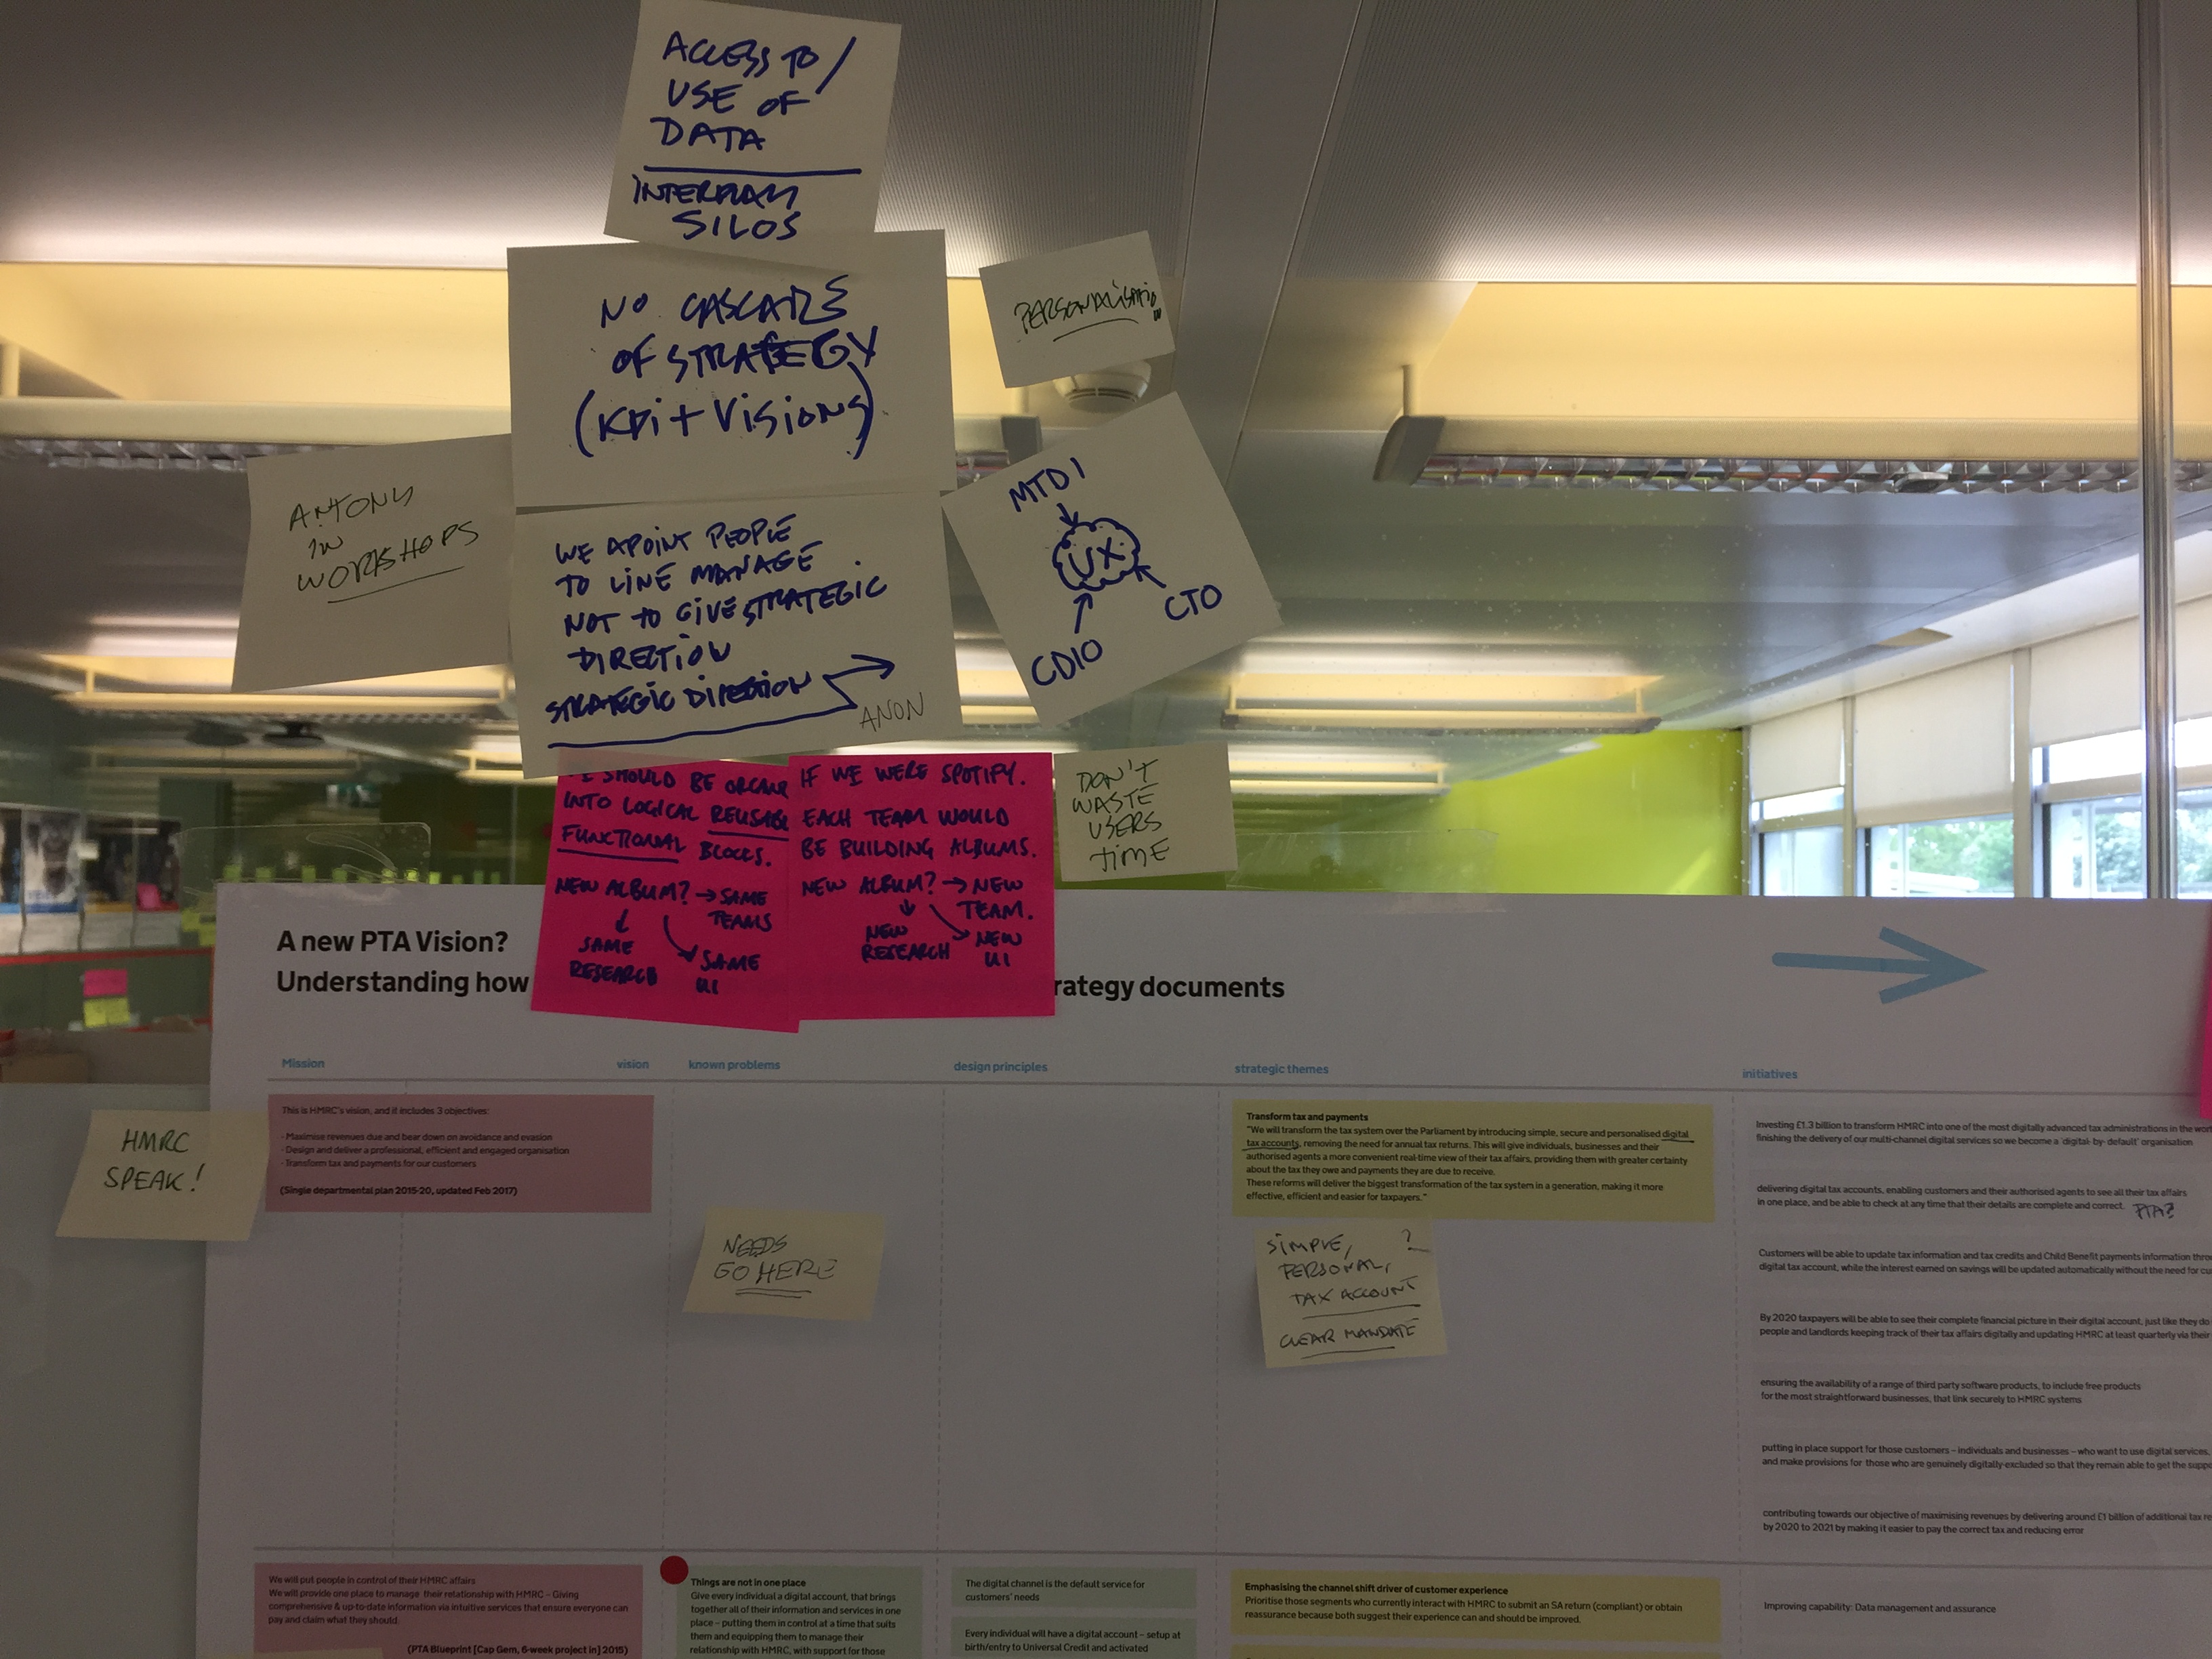 ACCESS TO /
USE OF
DATA
SILOS
NO CASCADE
OF STRATEGY
(KPi + Visions)
PERSONALISATIO
ANTONY
IN
WORKSHOPS
WE APOINT PEOPLE
TO LINE MANAGE
NOT TO GIVE STRATEGIC
DIRECTION
STRATEGIC DIRECTION
ANON
MTDI
UX
CTO
CDIO
SHOULD BE ORGANI
INTO LOGICAL REUSABLE
FUNCTIONAL BLOCKS.
NEW ALBUM? → SAME
TEAMS
SAME
RESEARCH
SAME
UI
IF WE WERE SPOTIFY.
EACH TEAM WOULD
BE BUILDING ALBUMS.
NEW ALBUM? → NEW
TEAM.
NEW
RESEARCH
NEW
UI
DON'T
WASTE
USERS
TIME
A new PTA Vision?
Understanding how
rategy documents
Mission
vision
known problems
design principles
strategic themes
initiatives
HMRC
SPEAK!
This is HMRC's vision, and it includes 3 objectives:
- Maximise revenues due and bear down on avoidance and evasion
- Design and deliver a professional, efficient and engaged organisation
- Transform tax and payments for our customers
(Single departmental plan 2015-20, updated Feb 2017)
NEEDS
GO HERE
Transform tax and payments
"We will transform the tax system over the Parliament by introducing simple, secure and personalised digital
tax accounts, removing the need for annual tax returns. This will give individuals, businesses and their
authorised agents a more convenient real-time view of their tax affairs, providing them with greater certainty
about the tax they owe and payments they are due to receive.
These reforms will deliver the biggest transformation of the tax system in a generation, making it more
effective, efficient and easier for taxpayers."
SIMPLE, ?
PERSONAL,
TAX ACCOUNT
CLEAR MANDATE
Investing £1.3 billion to transform HMRC into one of the most digitally advanced tax administrations in the wor
finishing the delivery of our multi-channel digital services so we become a 'digital-by-default' organisation
delivering digital tax accounts, enabling customers and their authorised agents to see all their tax affairs
in one place, and be able to check at any time that their details are complete and correct. PTA?
Customers will be able to update tax information and tax credits and Child Benefit payments information thro
digital tax account, while the interest earned on savings will be updated automatically without the need for cu
By 2020 taxpayers will be able to see their complete financial picture in their digital account, just like they do
people and landlords keeping track of their tax affairs digitally and updating HMRC at least quarterly via their
ensuring the availability of a range of third party software products, to include free products
for the most straightforward businesses, that link securely to HMRC systems
putting in place support for those customers – individuals and businesses – who want to use digital services,
and make provisions for those who are genuinely digitally-excluded so that they remain able to get the suppo
contributing towards our objective of maximising revenues by delivering around £1 billion of additional tax re
by 2020 to 2021 by making it easier to pay the correct tax and reducing error
We will put people in control of their HMRC affairs
We will provide one place to manage their relationship with HMRC – Giving
comprehensive & up-to-date information via intuitive services that ensure everyone can
pay and claim what they should.
(PTA Blueprint [Cap Gem, 6-week project in] 2015)
Things are not in one place
Give every individual a digital account, that brings
together all of their information and services in one
place – putting them in control at a time that suits
them and equipping them to manage their
relationship with HMRC, with support for those
The digital channel is the default service for
customers' needs
Every individual will have a digital account – setup at
birth/entry to Universal Credit and activated
Emphasising the channel shift driver of customer experience
Prioritise those segments who currently interact with HMRC to submit an SA return (compliant) or obtain
reassurance because both suggest their experience can and should be improved.
Improving capability: Data management and assurance